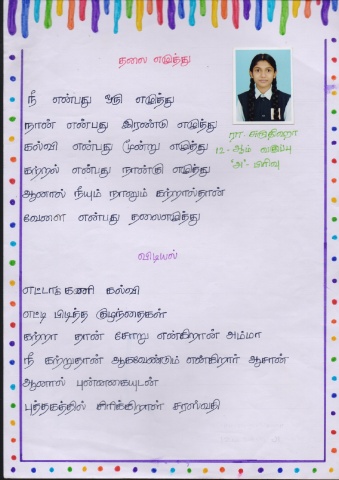 தலை எழுத்து
நீ என்பது ஓர் எழுத்து
நான் என்பது இரண்டு எழுத்து
கல்வி என்பது மூன்று எழுத்து
கற்றல் என்பது நான்கு எழுத்து
ஆனால் நீயும் நானும் கற்றால்தான்
வேலை என்பது தலைஎழுத்து
ரா.
12-ஆம் வகுப்பு
'அ'-பிரிவு
விடியல்
எட்டாக் கனி கல்வி
எட்டி பிடித்த குழந்தைகள்
கற்றா தான் சோறு என்கிறாள் அம்மா
நீ கற்றுதான் ஆகவேண்டும் என்கிறார் ஆசான்
ஆனால் புன்னகையுடன்
புத்தகத்தில் சிரிக்கிறாள் சரஸ்வதி